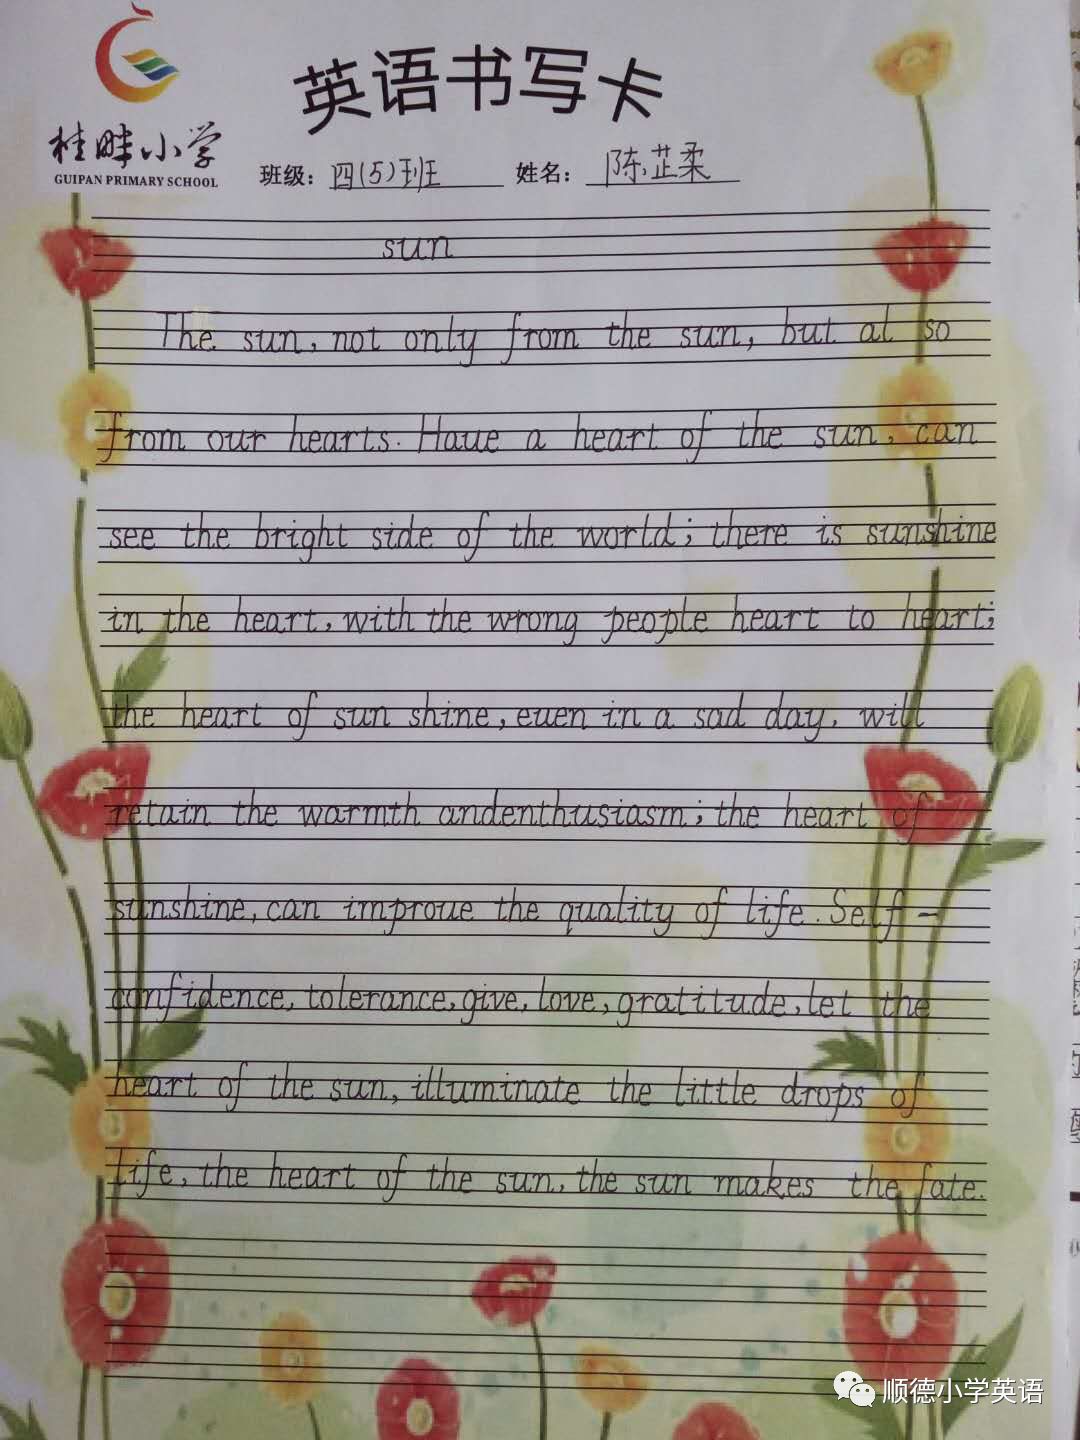 英语书写卡
桂畔小学
GUIPAN PRIMARY SCHOOL
班级: 四(5)班 姓名: 陈芷柔
sun
The sun, not only from the sun, but al so
from our hearts. Have a heart of the sun, can
see the bright side of the world; there is sunshine
in the heart, with the wrong people heart to heart;
the heart of sun shine, even in a sad day, will
retain the warmth andenthusiasm; the heart of
sunshine, can improve the quality of life. Self-
confidence, tolerance, give, love, gratitude, let the
heart of the sun, illuminate the little drops of
life, the heart of the sun, the sun makes the fate.
顺德小学英语